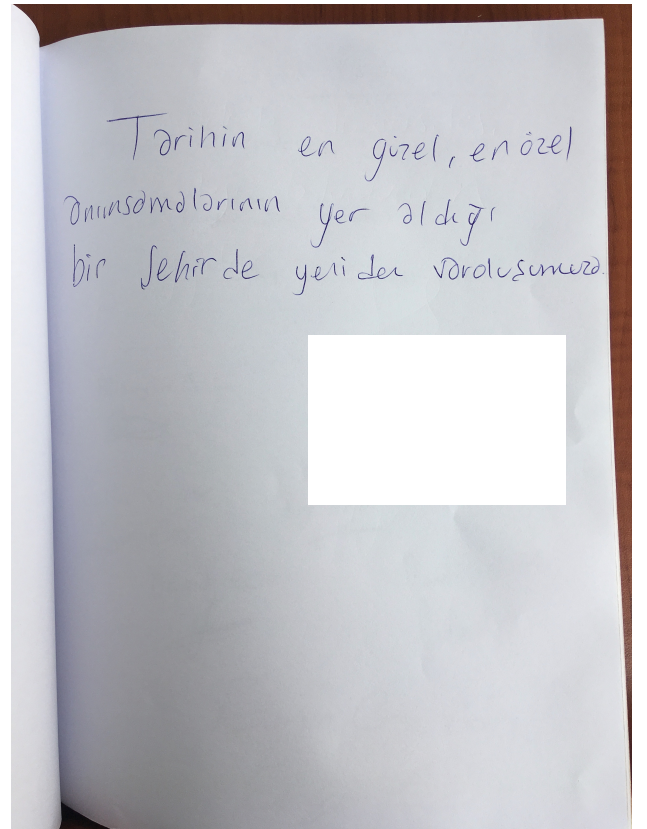 Tarihin en güzel, en özel
anımsamalarının yer aldığı
bir şehirde yeniden varoluşumuza.